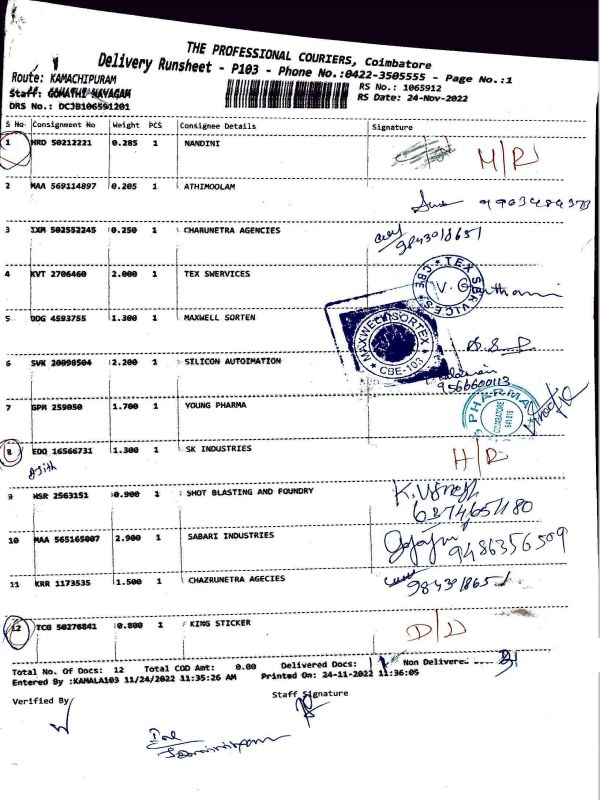 THE PROFESSIONAL COURIERS, Coimbatore
Delivery Runsheet - P103 - Phone No.:0422-3505555 - Page No.:1
Route: KAMACHIPURAM
RS No.: 1065912
Staff: GOMATHI NAYAGAM
RS Date: 24-Nov-2022
DRS No.: DCJB106591201
S No Consignment No Weight PCS Consignee Details Signature
1 HRD 50212221 0.285 1 NANDINI
2 MAA 569114897 0.205 1 ATHIMOOLAM
3 IXM 502552245 0.250 1 CHARUNETRA AGENCIES
9843018651
4 KVT 2706460 2.000 1 TEX SWERVICES
TEX SERVICES CBE
5 DDG 4593755 1.300 1 MAXWELL SORTEN
MAXWELL SORTEX CBE-103
6 SVK 20098504 2.200 1 SILICON AUTOIMATION
9566600113
7 GPM 259050 1.700 1 YOUNG PHARMA
PHARMA
COIMBATORE
641 016
8 EDQ 16566731 1.300 1 SK INDUSTRIES
Ajith
9 HSR 2563151 0.900 1 SHOT BLASTING AND FOUNDRY
10 MAA 565165007 2.900 1 SABARI INDUSTRIES
9486356509
11 KRR 1173535 1.500 1 CHAZRUNETRA AGECIES
9843918651
12 TCG 50276841 0.800 1 KING STICKER
D/D
Total No. Of Docs: 12 Total COD Amt: 0.00 Delivered Docs: Non Delivered
Entered By :KAMALA103 11/24/2022 11:35:26 AM Printed On: 24-11-2022 11:36:05
Verified By Staff Signature